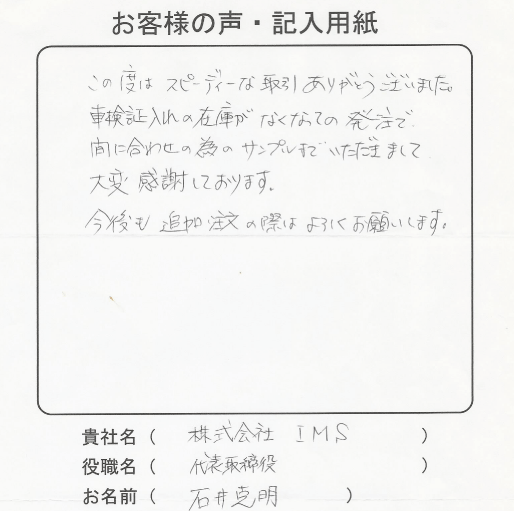 お客様の声・記入用紙
この度は スピーディーな取引 ありがとうございました。
車検証入れの在庫が なくなっての 発注で
間に合わせの為の サンプルまで いただきまして
大変 感謝しております。
今後も 追加注文の際は よろしくお願いします。
貴社名 ( 株式会社 IMS )
役職名 ( 代表取締役 )
お名前 ( 石井克明 )